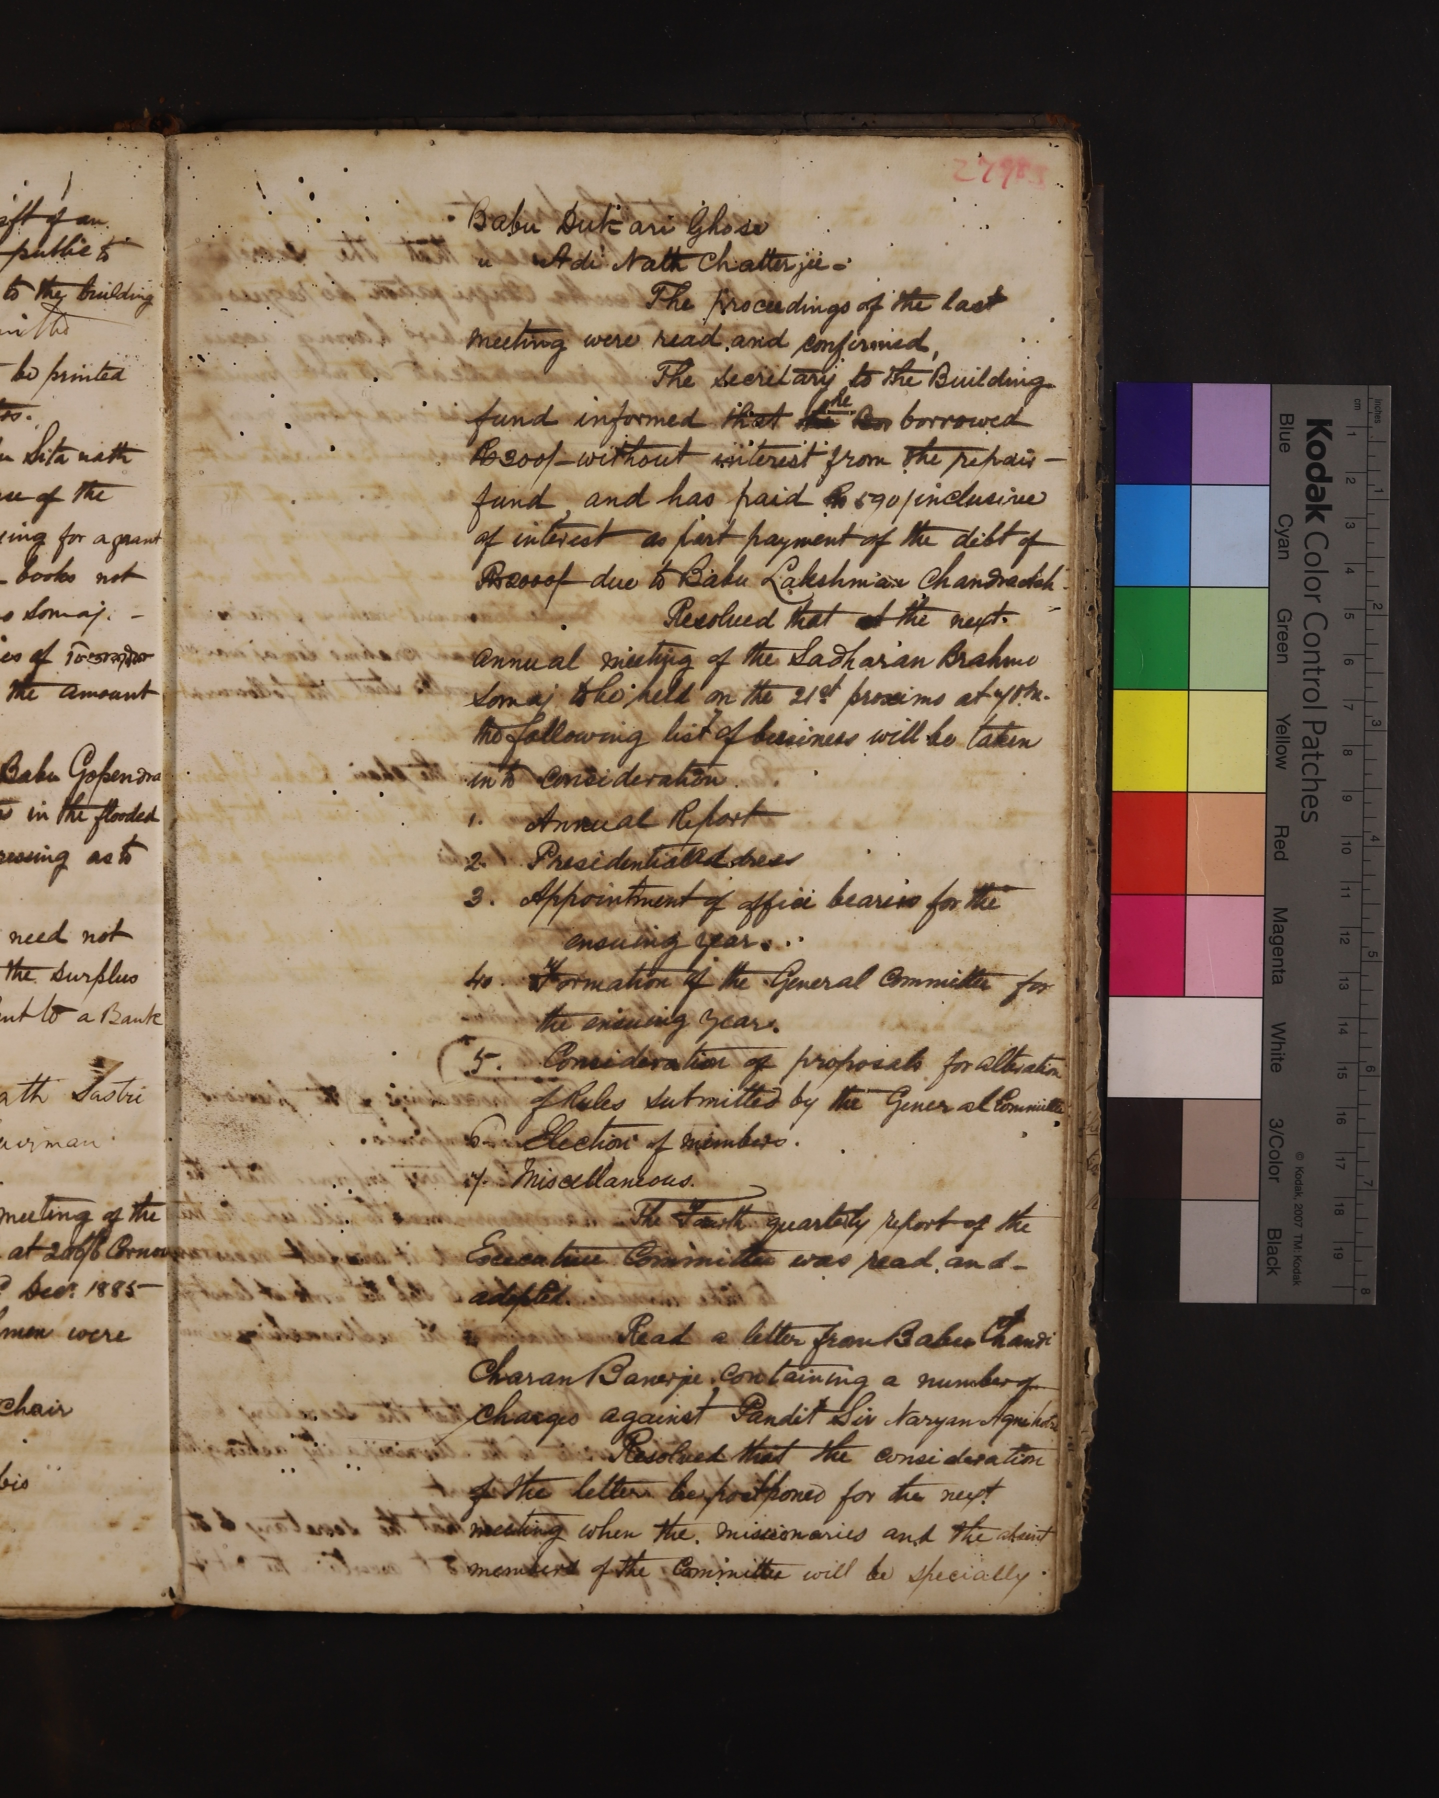 ift of an
public to
to the building
be printed
Sita nath
use of the
ing for a grant
books not
Somaj. -
es of
the amount
Babu Gopendra
in the flooded
ressing as to
need not
the surplus
ent to a Bank
ath Sastri
airman
meeting of the
at
Decr. 1885
men were
Chair
279
Babu Dukari Ghose
" Adi Nath Chatterjee -
The proceedings of the last
meeting were read and confirmed,
The Secretary to the Building
fund informed that he borrowed
Rs 200/- without interest from the repair -
fund, and has paid Rs 590/ inclusive
of interest as part payment of the debt of
Rs 2000/- due to Babu Lakshman Chandra
Resolved that at the next
annual meeting of the Sadharan Brahmo
Somaj to be held on the 21st proximo at 7 P.M.
the following list of business will be taken
into consideration.
1. Annual Report
2. Presidential Address
3. Appointment of office bearers for the
ensuing year.
4. Formation of the General Committee for
the ensuing year.
5. Consideration of proposals for alteration
of Rules submitted by the General Committee
6. Election of members.
7. Miscellaneous.
The Fourth quarterly report of the
Executive Committee was read and -
adopted.
Read a letter from Babu Chandi
Charan Banerje, containing a number of
charges against Pandit Siv Naryan Agnihotri
Resolved that the consideration
of the letter be postponed for the next
meeting when the missionaries and the absent
members of the Committee will be specially
Kodak Color Control Patches
Blue Cyan Green Yellow Red Magenta White 3/Color Black
© Kodak, 2007 TM: Kodak
inches 1 2 3 4 5 6 7 8
cm 1 2 3 4 5 6 7 8 9 10 11 12 13 14 15 16 17 18 19